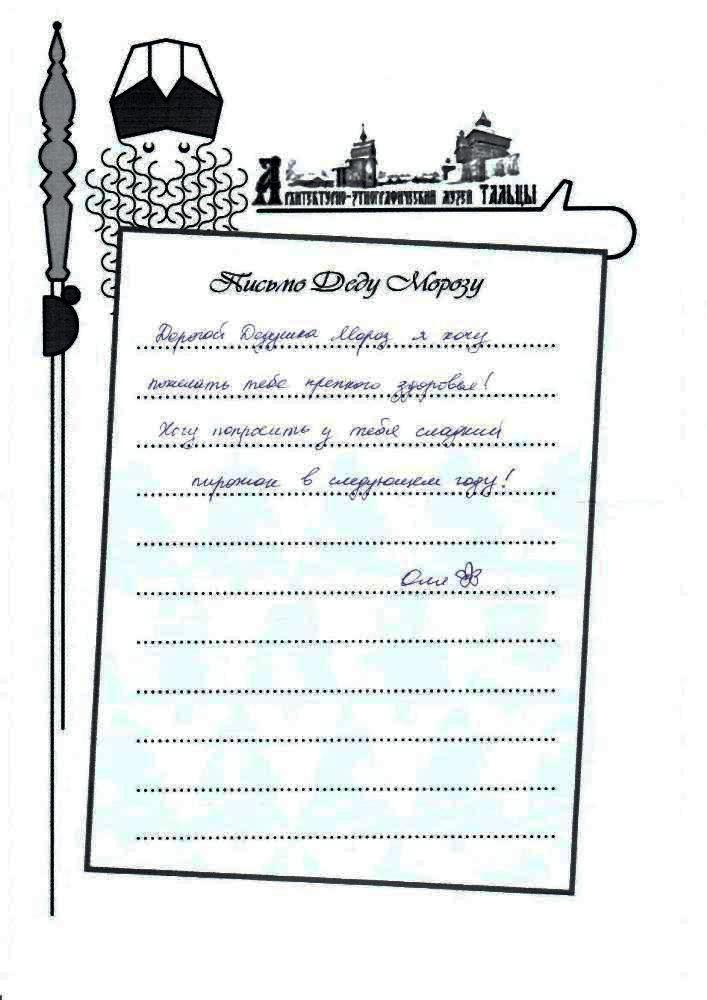 Архитектурно-этнографический музей ТАЛЬЦЫ
Письмо Деду Морозу
Дорогой Дедушка Мороз я хочу
пожелать тебе крепкого здоровья!
Хочу попросить у тебя сладкий
пирожок в следующем году!
Оля